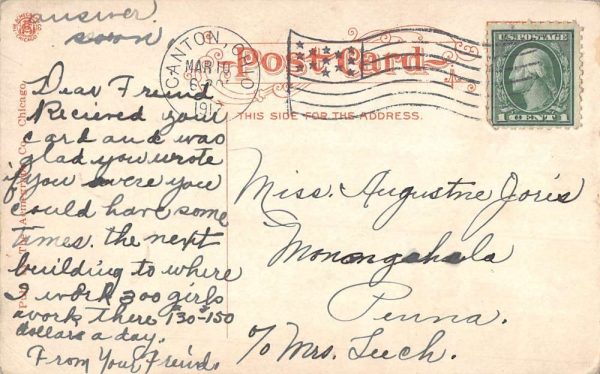 answer
soon
CANTON, OHIO
MAR 10
191
Post Card
THIS SIDE FOR THE ADDRESS.
U.S. POSTAGE
1 CENT 1
Dear Friend
Recieved your
card and was
glad you wrote
if you were you
could have some
times. the next
building to where
I work 300 girls
awork there $1.30-$1.50
dollars a day.
From Your Friends
Miss. Augustne Joris
Monongahala
Penna.
c/o Mrs. Luch.